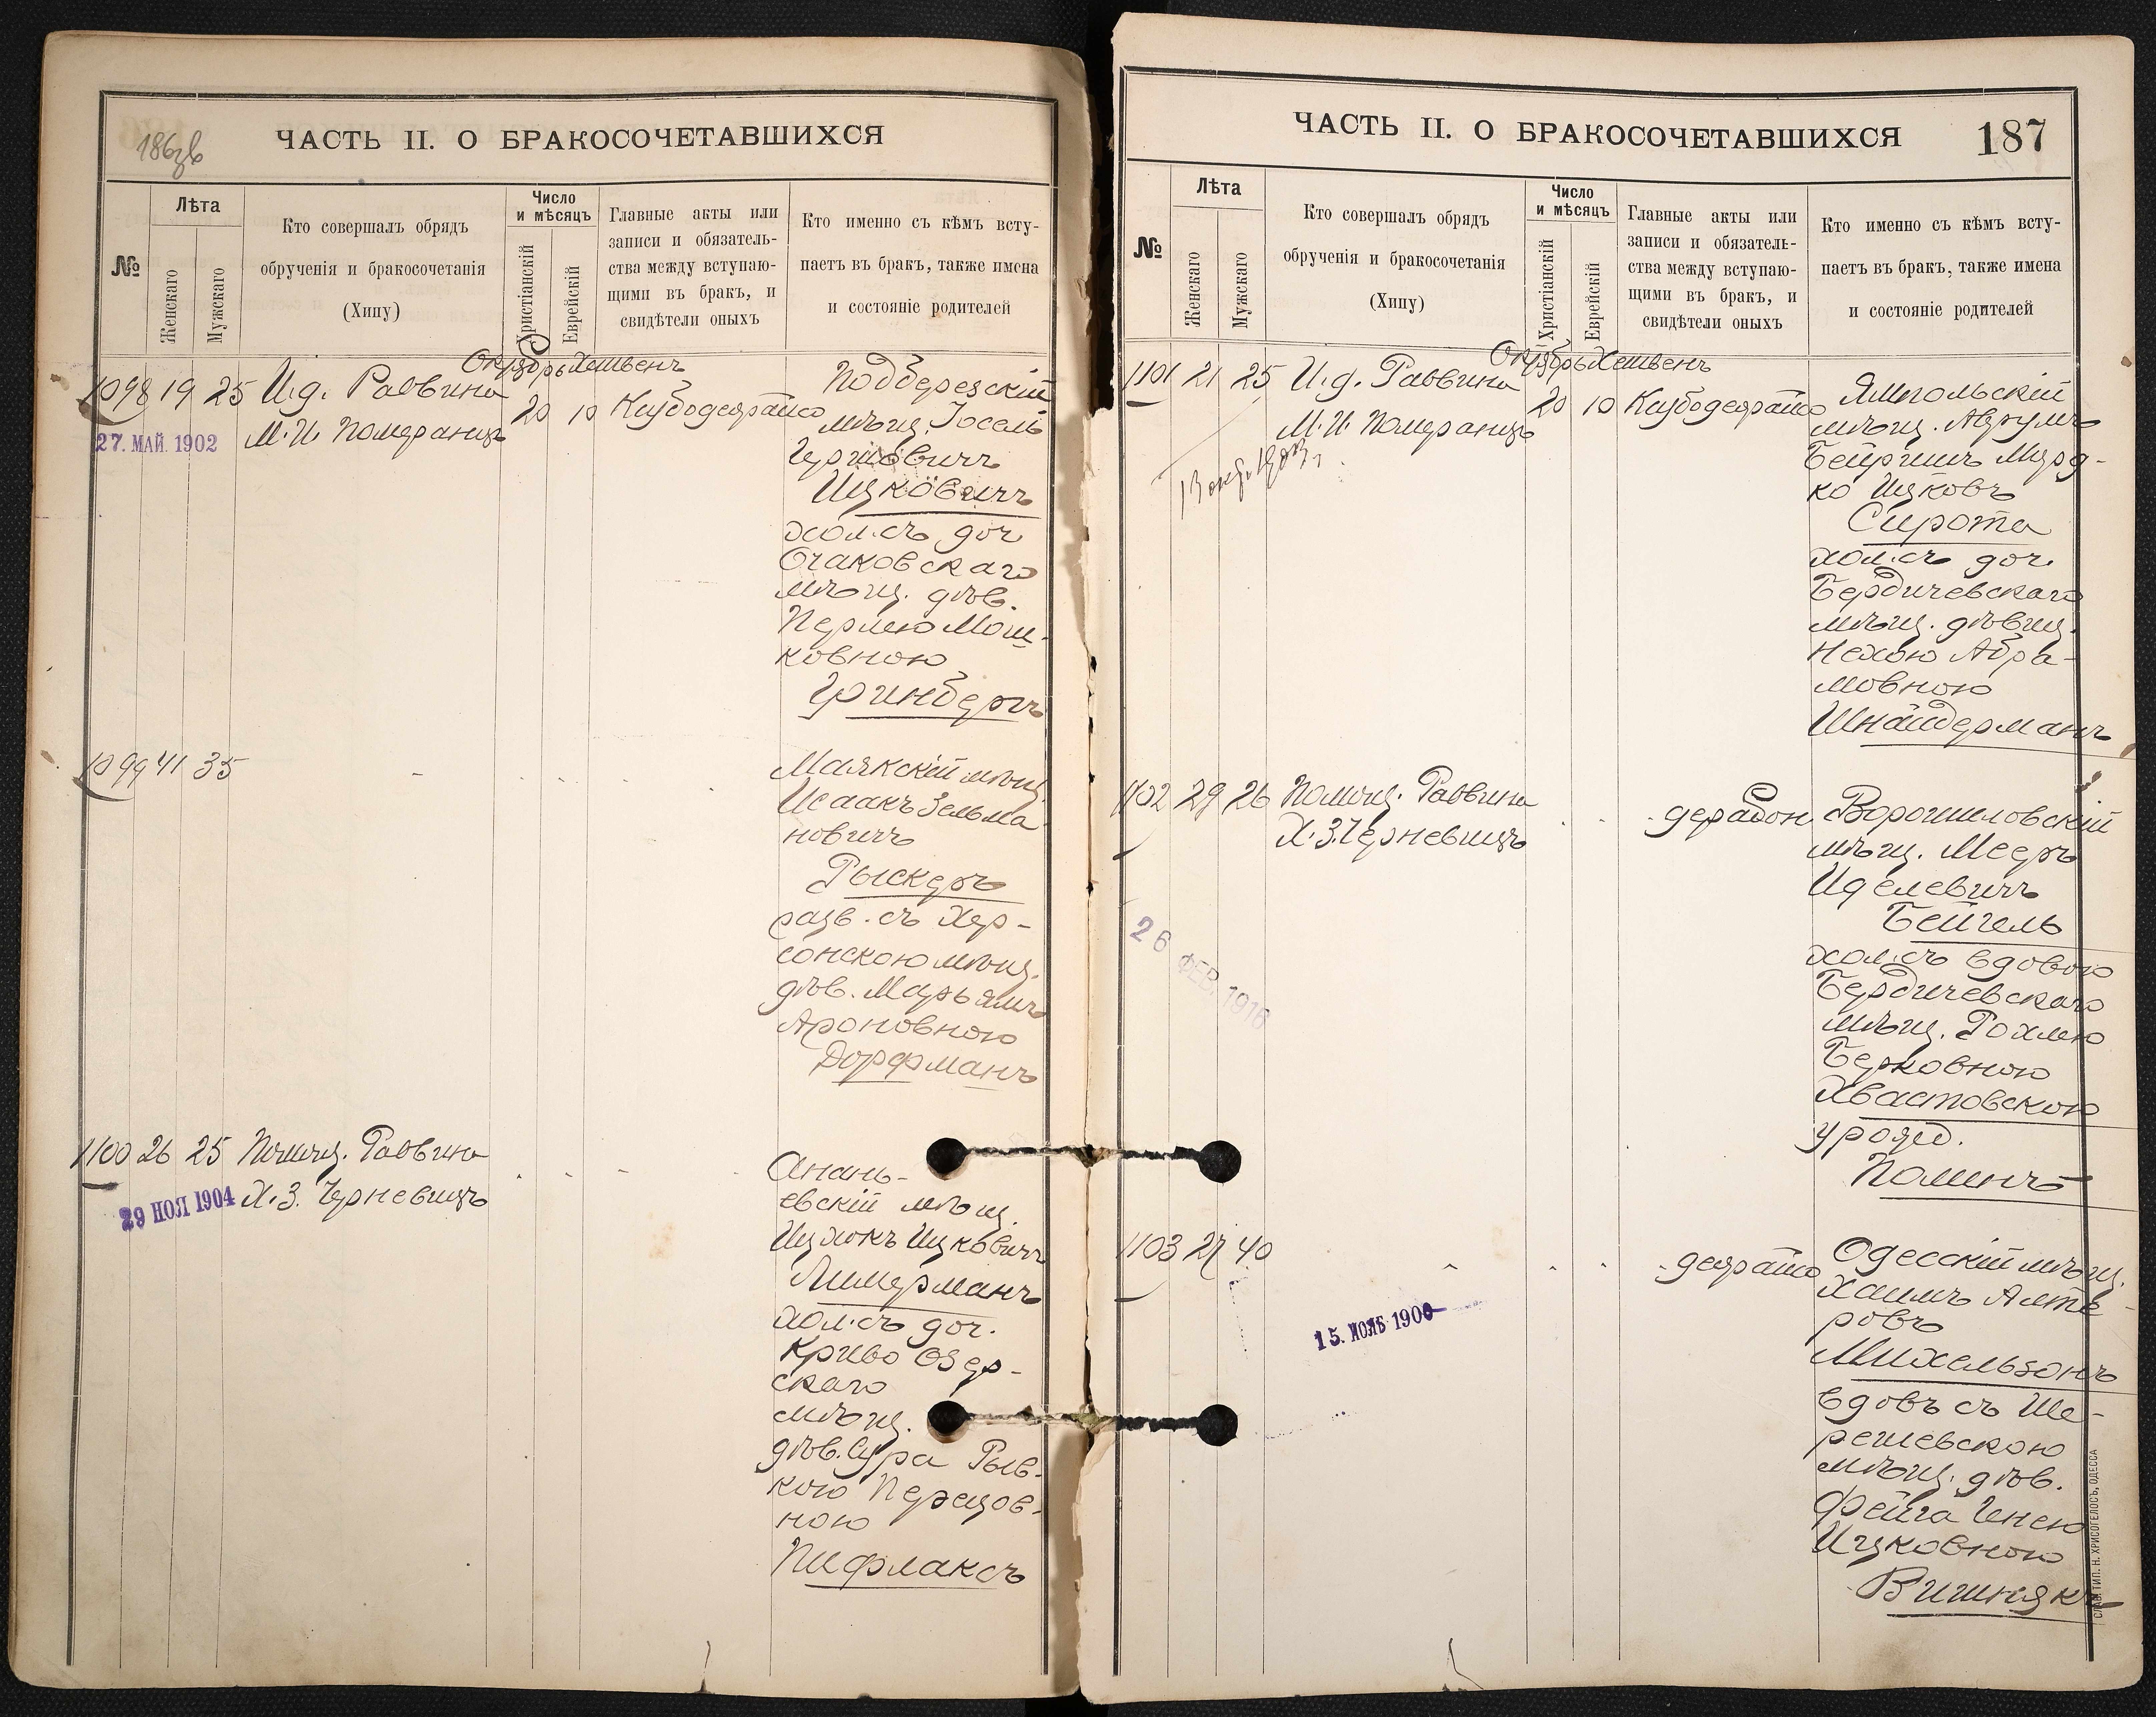 186об
ЧАСТЬ II. О БРАКОСОЧЕТАВШИХСЯ
№
Лѣта
Женскаго
Мужскаго
Кто совершалъ обрядъ
обрученія и бракосочетанія
(Хипу)
Число
и мѣсяцъ
Христіанскій
Еврейскій
Главные акты или
записи и обязатель-
ства между вступаю-
щими въ бракъ, и
свидѣтели оныхъ
Кто именно съ кѣмъ всту-
паетъ въ бракъ, также имена
и состояніе родителей
Октябрь Хешвенъ
1098 19 25 И.д. Раввина
М. И. Померанцъ
20 10 Кисубодеорайсо
27. МАЙ 1902
Подберезскій
мѣщ. Іосель
Гершовичъ
Ицковичъ
хол. съ доч.
Очаковскаго
мѣщ. дѣв.
Перлею Мош-
ковною
Гринбергъ
1099 41 35
Маякскій мѣщ.
Исаакъ Зельма-
новичъ
Рыскеръ
разв. съ Хер-
сонскою мѣщ.
дѣв. Марьямъ
Ароновною
Дорфманъ
1100 26 25 Помощ. Раввина
Х. З. Черневицъ
29 НОЯ 1904
Анань-
евскій мѣщ.
Ицхокъ Ицковичъ
Лимерманъ
хол. съ доч.
Криво Озер-
скаго
мѣщ.
дѣв. Сура Рыв-
кою Перецов-
ною
Пифлаксъ
ЧАСТЬ II. О БРАКОСОЧЕТАВШИХСЯ
187
№
Лѣта
Женскаго
Мужскаго
Кто совершалъ обрядъ
обрученія и бракосочетанія
(Хипу)
Число
и мѣсяцъ
Христіанскій
Еврейскій
Главные акты или
записи и обязатель-
ства между вступаю-
щими въ бракъ, и
свидѣтели оныхъ
Кто именно съ кѣмъ всту-
паетъ въ бракъ, также имена
и состояніе родителей
Октябрь Хешвенъ
1101 21 25 И. д. Раввина
М. И. Померанцъ
20 10 Кисубодеорайсо
Ямпольскій
мѣщ. Аврумъ
Бейришъ Морд-
ко Ицковъ
Сирота
хол. съ доч.
Бердичевскаго
мѣщ. дѣвиц.
Нехою Абра-
мовною
Шнайдерманъ
1102 29 26 Помощ. Раввина
Х. З. Черневицъ
дерабон
26 ФЕВ. 1916
Ворошиловскій
мѣщ. Мееръ
Иделевичъ
Бейгель
хол. съ вдовою
Бердичевскаго
мѣщ. Рохлею
Берковною
Хвастовскою
урожд.
Полинъ
1103 27 40
деорайсо
15. ИОЛЬ 1900
Одесскій мѣщ.
Хаимъ Алте-
ровъ
Михельзонъ
вдовъ съ Ше-
решевскою
мѣщ. дѣв.
Фейга Генею
Ицковною
Вишнякъ
СЛАВ. ТИП. Н. ХРИСОГЕЛОСЪ, ОДЕССА